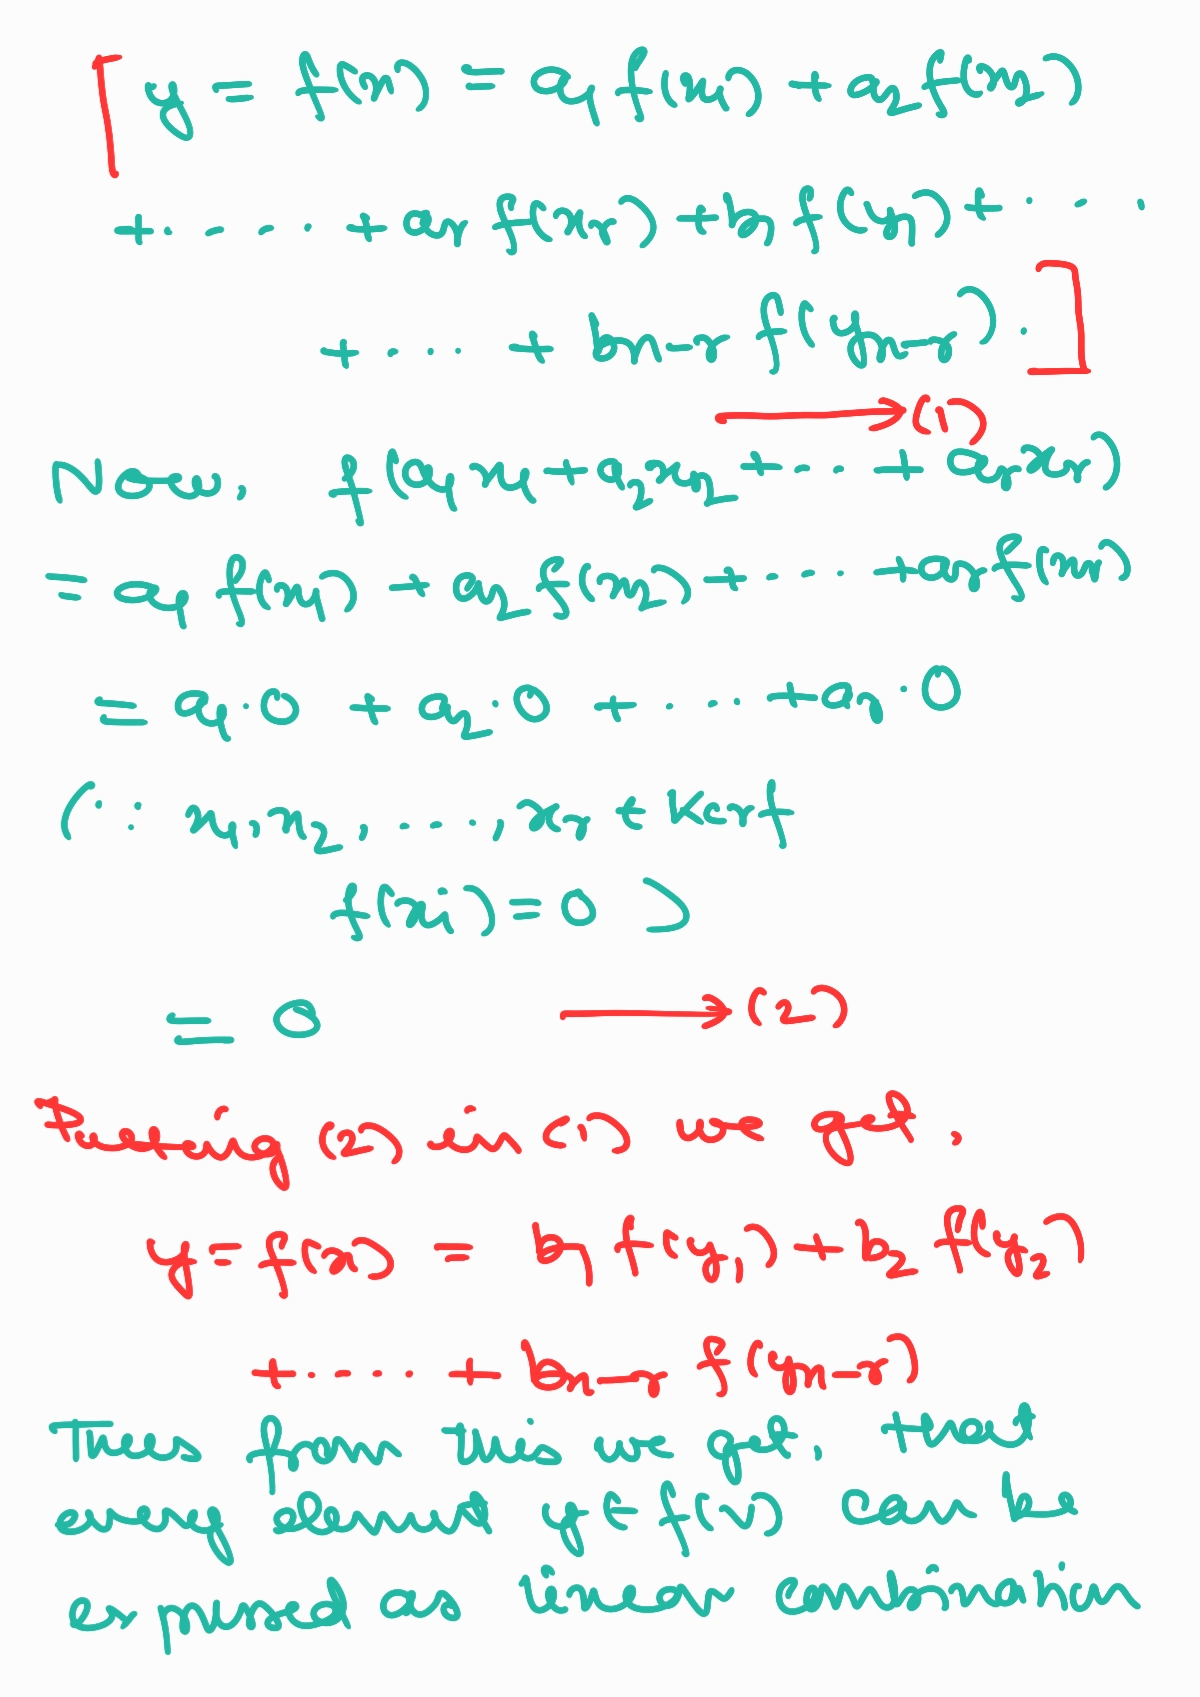 [ y = f(x) = a₁ f(x₁) + a₂ f(x₂)
+ . . . . + aᵣ f(xᵣ) + b₁ f(y₁) + . . .
+ . . . + bₙ₋ᵣ f(yₙ₋ᵣ). ]
⟶ (1)
Now, f(a₁x₁ + a₂x₂ + .. .. + aᵣxᵣ)
= a₁ f(x₁) + a₂ f(x₂) + . . . . + aᵣ f(xᵣ)
= a₁·0 + a₂·0 + . . . . + aᵣ·0
(∵ x₁, x₂, . . . . , xᵣ ∈ Kerf
f(xi) = 0 )
= 0 ⟶ (2)
Putting (2) in (1) we get,
y = f(x) = b₁ f(y₁) + b₂ f(y₂)
+ . . . . . + bₙ₋ᵣ f(yₙ₋ᵣ)
Thus from this we get, that
every element y ∈ f(v) can be
expressed as linear combination